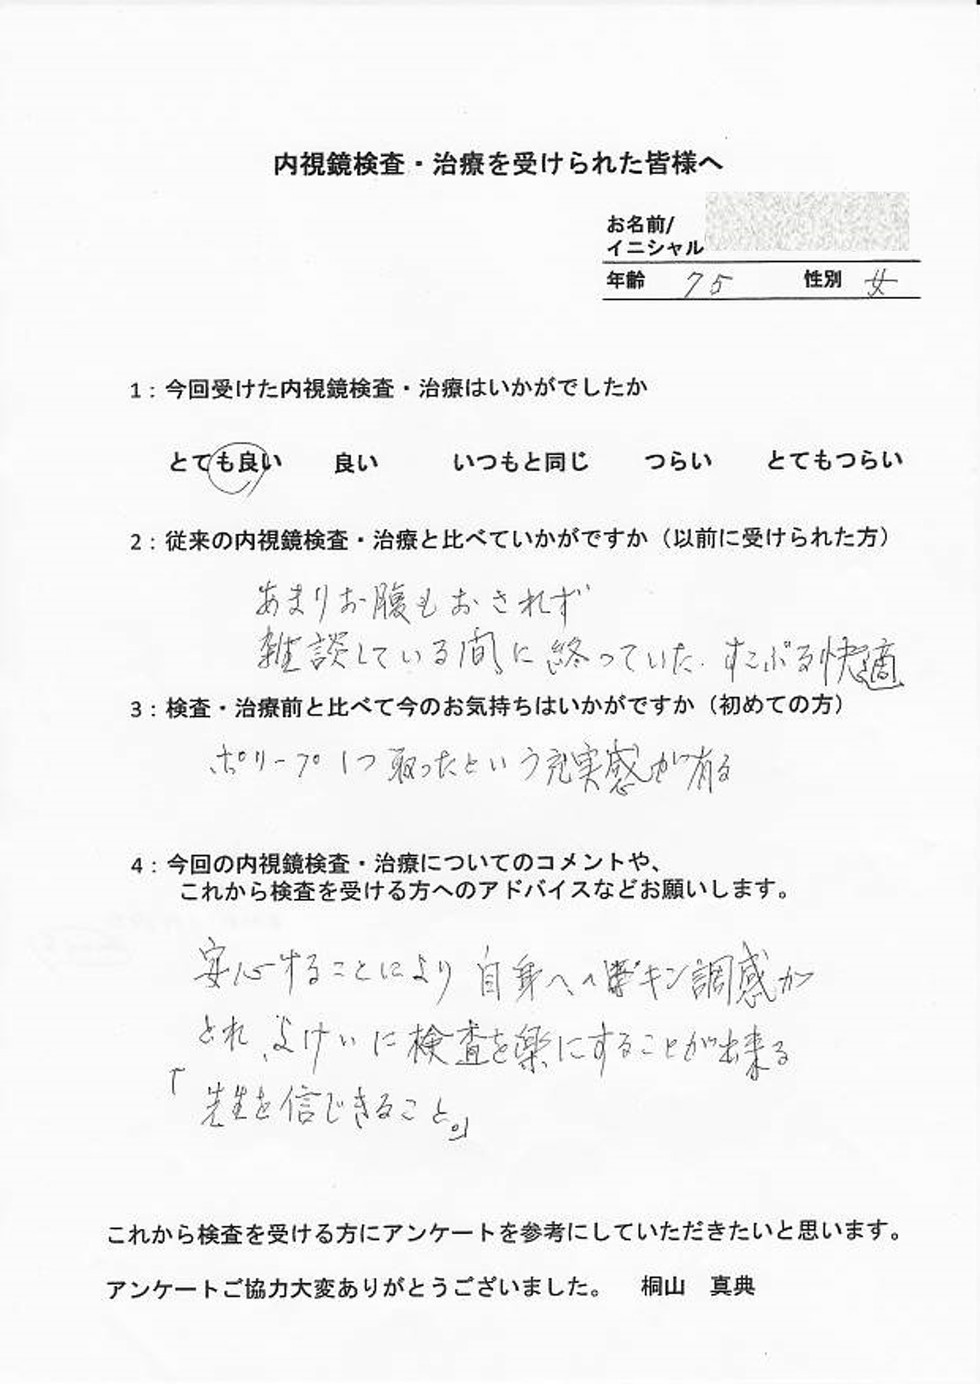 内視鏡検査・治療を受けられた皆様へ
お名前/
イニシャル
年齢 75 性別 女
1：今回受けた内視鏡検査・治療はいかがでしたか
とても良い 良い いつもと同じ つらい とてもつらい
2：従来の内視鏡検査・治療と比べていかがですか（以前に受けられた方）
あまりお腹もおされず
雑談している間に終っていた. すこぶる快適
3：検査・治療前と比べて今のお気持ちはいかがですか（初めての方）
ポリープ1つ取ったという充実感が有る
4：今回の内視鏡検査・治療についてのコメントや、
これから検査を受ける方へのアドバイスなどお願いします。
安心することにより自身への キン調感が
とれ、よけいに検査を楽にすることが出来る
「先生を信じきること。」
これから検査を受ける方にアンケートを参考にしていただきたいと思います。
アンケートご協力大変ありがとうございました。 桐山 真典